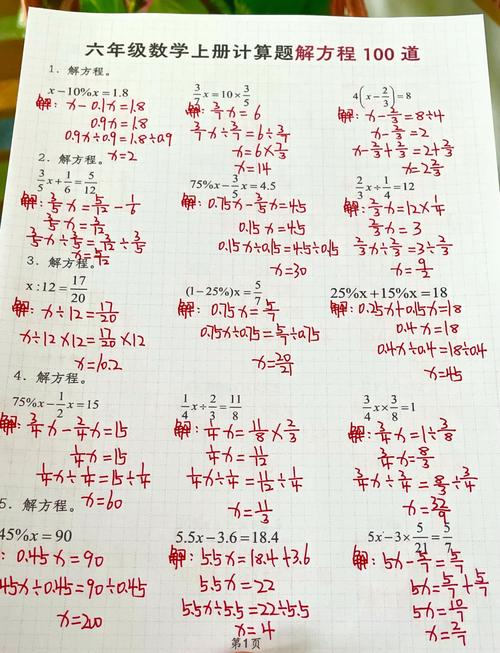 六年级数学上册计算题解方程 100 道
1．解方程。
x－10%x＝1.8
解：x－0.1x＝1.8
0.9x＝1.8
0.9x÷0.9＝1.8÷0.9
x＝2
3/7x＝10×3/5
解：3/7x＝6
3/7x÷3/7＝6÷3/7
x＝6×7/3
x＝14
4(x－2/3)＝8
解：x－2/3＝8÷4
x－2/3＝2
x－2/3＋2/3＝2＋2/3
x＝2 2/3
2．解方程。
3/5x＋1/6＝5/12
解：3/5x＝5/12－1/6
3/5x＝3/12
3/5x÷3/5＝3/12÷3/5
x＝5/12
75%x－3/5x＝4.5
解：0.75x－3/5x＝4.5
0.15x＝4.5
0.15x÷0.15＝4.5÷0.15
x＝30
2/3x÷1/4＝12
解：2/3x＝12×1/4
2/3x＝3
2/3x÷2/3＝3÷2/3
x＝9/2
3．解方程。
x：12＝17/20
解：x÷12＝17/20
x÷12×12＝17/20×12
x＝10.2
(1－25%)x＝5/7
解：0.75x＝5/7
0.75x÷0.75＝5/7÷0.75
x＝20/21
25%x＋15%x＝18
解：0.25x＋0.15x＝18
0.4x＝18
0.4x÷0.4＝18÷0.4
x＝45
4．解方程。
75%x－1/2x＝15
解：3/4x－2/4x＝15
1/4x＝15
1/4x÷1/4＝15÷1/4
x＝60
1/4x÷2/3＝11/8
解：1/4x＝11/8×2/3
1/4x＝11/12
1/4x÷1/4＝11/12÷1/4
x＝11/3
3/4x×3/8＝1
解：3/4x＝1÷3/8
3/4x＝8/3
3/4x÷3/4＝8/3÷3/4
x＝32/9
5．解方程。
45%x＝90
：0.45x＝90
0.45x÷0.45＝90÷0.45
x＝200
5.5x－3.6＝18.4
解：5.5x＝18.4＋3.6
5.5x＝22
5.5x÷5.5＝22÷5.5
x＝4
5x－3×5/21＝5/7
解：5x－5/7＝5/7
5x＝5/7＋5/7
5x＝10/7
x＝2/7
第1页